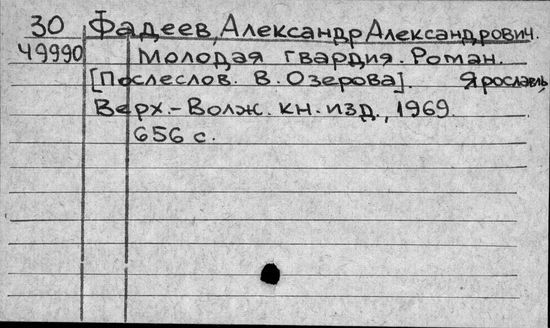 30 Фадеев, Александр Александрович.
49990 Молодая гвардия. Роман.
[Послеслов. В. Озерова]. Ярославль,
Верх.-Волж. кн. изд., 1969.
656 с.